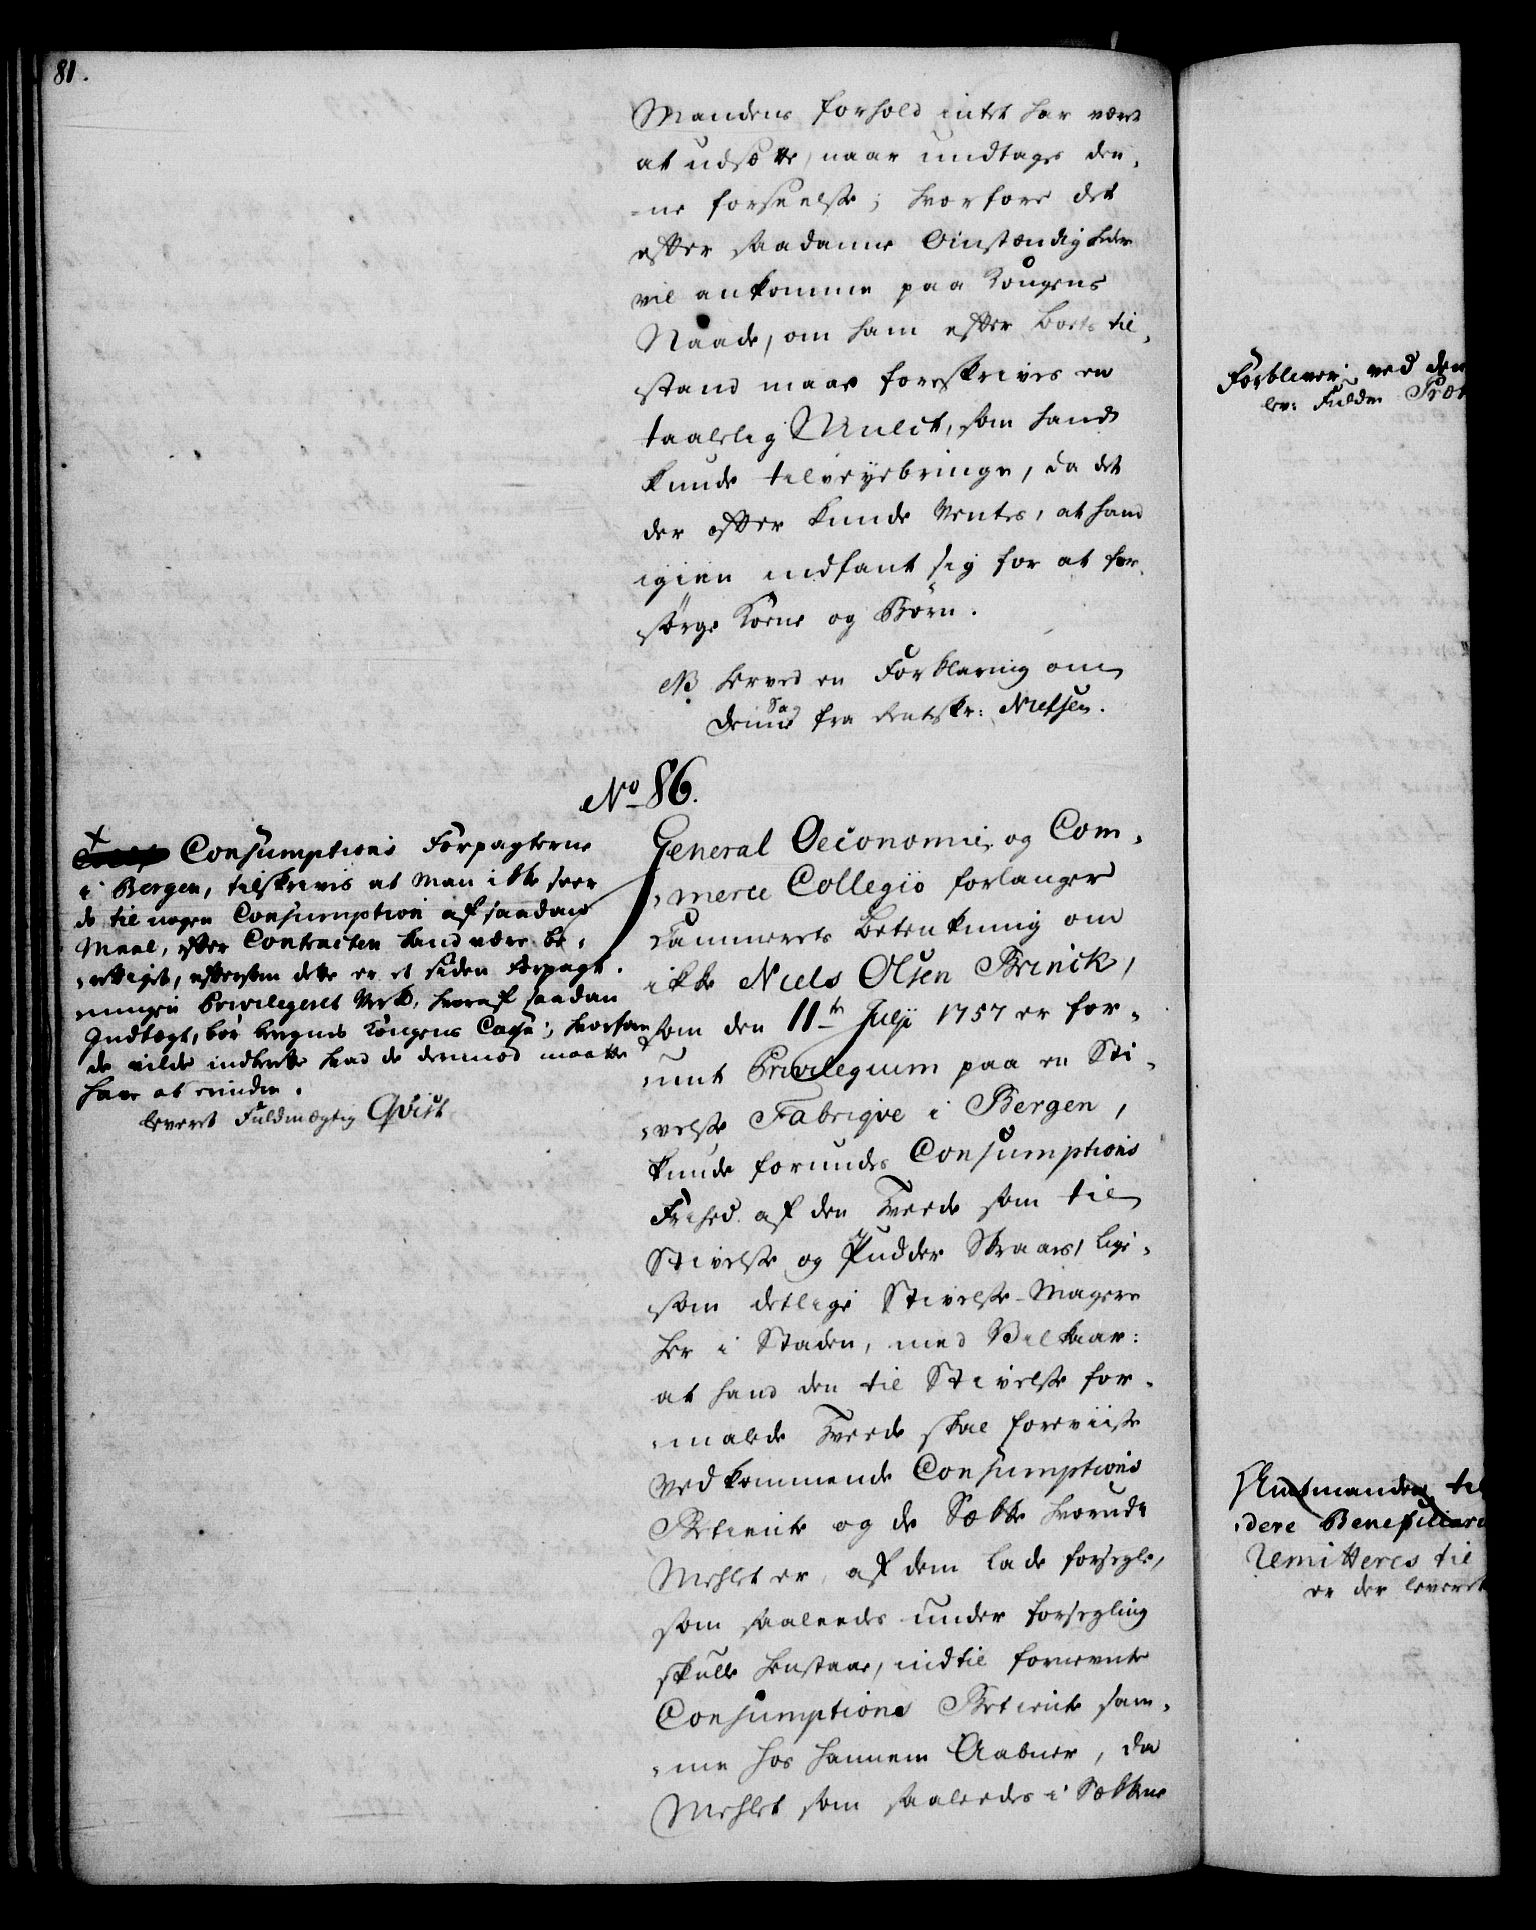 81.
Mandens forhold intet har været
at udsætte, naar undtages den,
-ne forseelse; hvorfore det
efter saadanne Omstændigheder
vil ankomme paa Kongens
Naade, om ham efter hans til,
stand maae foreskrives en
taalelig Mulct, som hand
kunde tilveyebringe, da det
der efter kunde ventes, at hand
igien indfant sig for at for,
sørge Kone og Børn.
NB herved en Forklaring om
denne Sag fra Rentskr: Nielsen.
No 86.
General Oeconomie, og Com,
,merce Collegio forlanger
Cammerets Betenkning om
ikke Niels Olsen Brinck,
som den 11te Julji 1757 er for,
,unt Privilegium paa en Sti,
,velse Fabriqve i Bergen,
kunde forundes Consumptions
Frihed af den Hvede som til
Stivelse og Pudder Skraaes, lige,
som deslige Stivelse-Magere
her i Staden, med Vilkaar:
at hand den til Stivelse for,
,malede Hvede skal foreviise
Vedkommende Consumptions
Betiente og de Sække hvorudi
Mehlet er, af dem lade forsegle,
som saaledes under forsegling
skulle henstaae, indtil fornevnte
Consumptions Betiente sam,
,me hos hannem Aabner, da
Mehlet som saaledes i Sækkene
+ Consumptions Forpagterne
i Bergen, tilskrives at man ikke seer
de til nogen Consumption af saadan
Maal, efter Contracten kand være be,
,rettiget, eftersom dette er et siden Forpagt,
,ningen Privilegeret Verk, hvoraf saadan
Indtægt, bør beregnes Kongens Casse; hvorfore
de vilde indberette hvad de derimod maatte
have at erindre.
leveret Fuldmægtig Qvist
Forbliver ved den
lev: Fuldm
Amtmanden til
,dere Beneficiere
Remitteres til
er der leveret